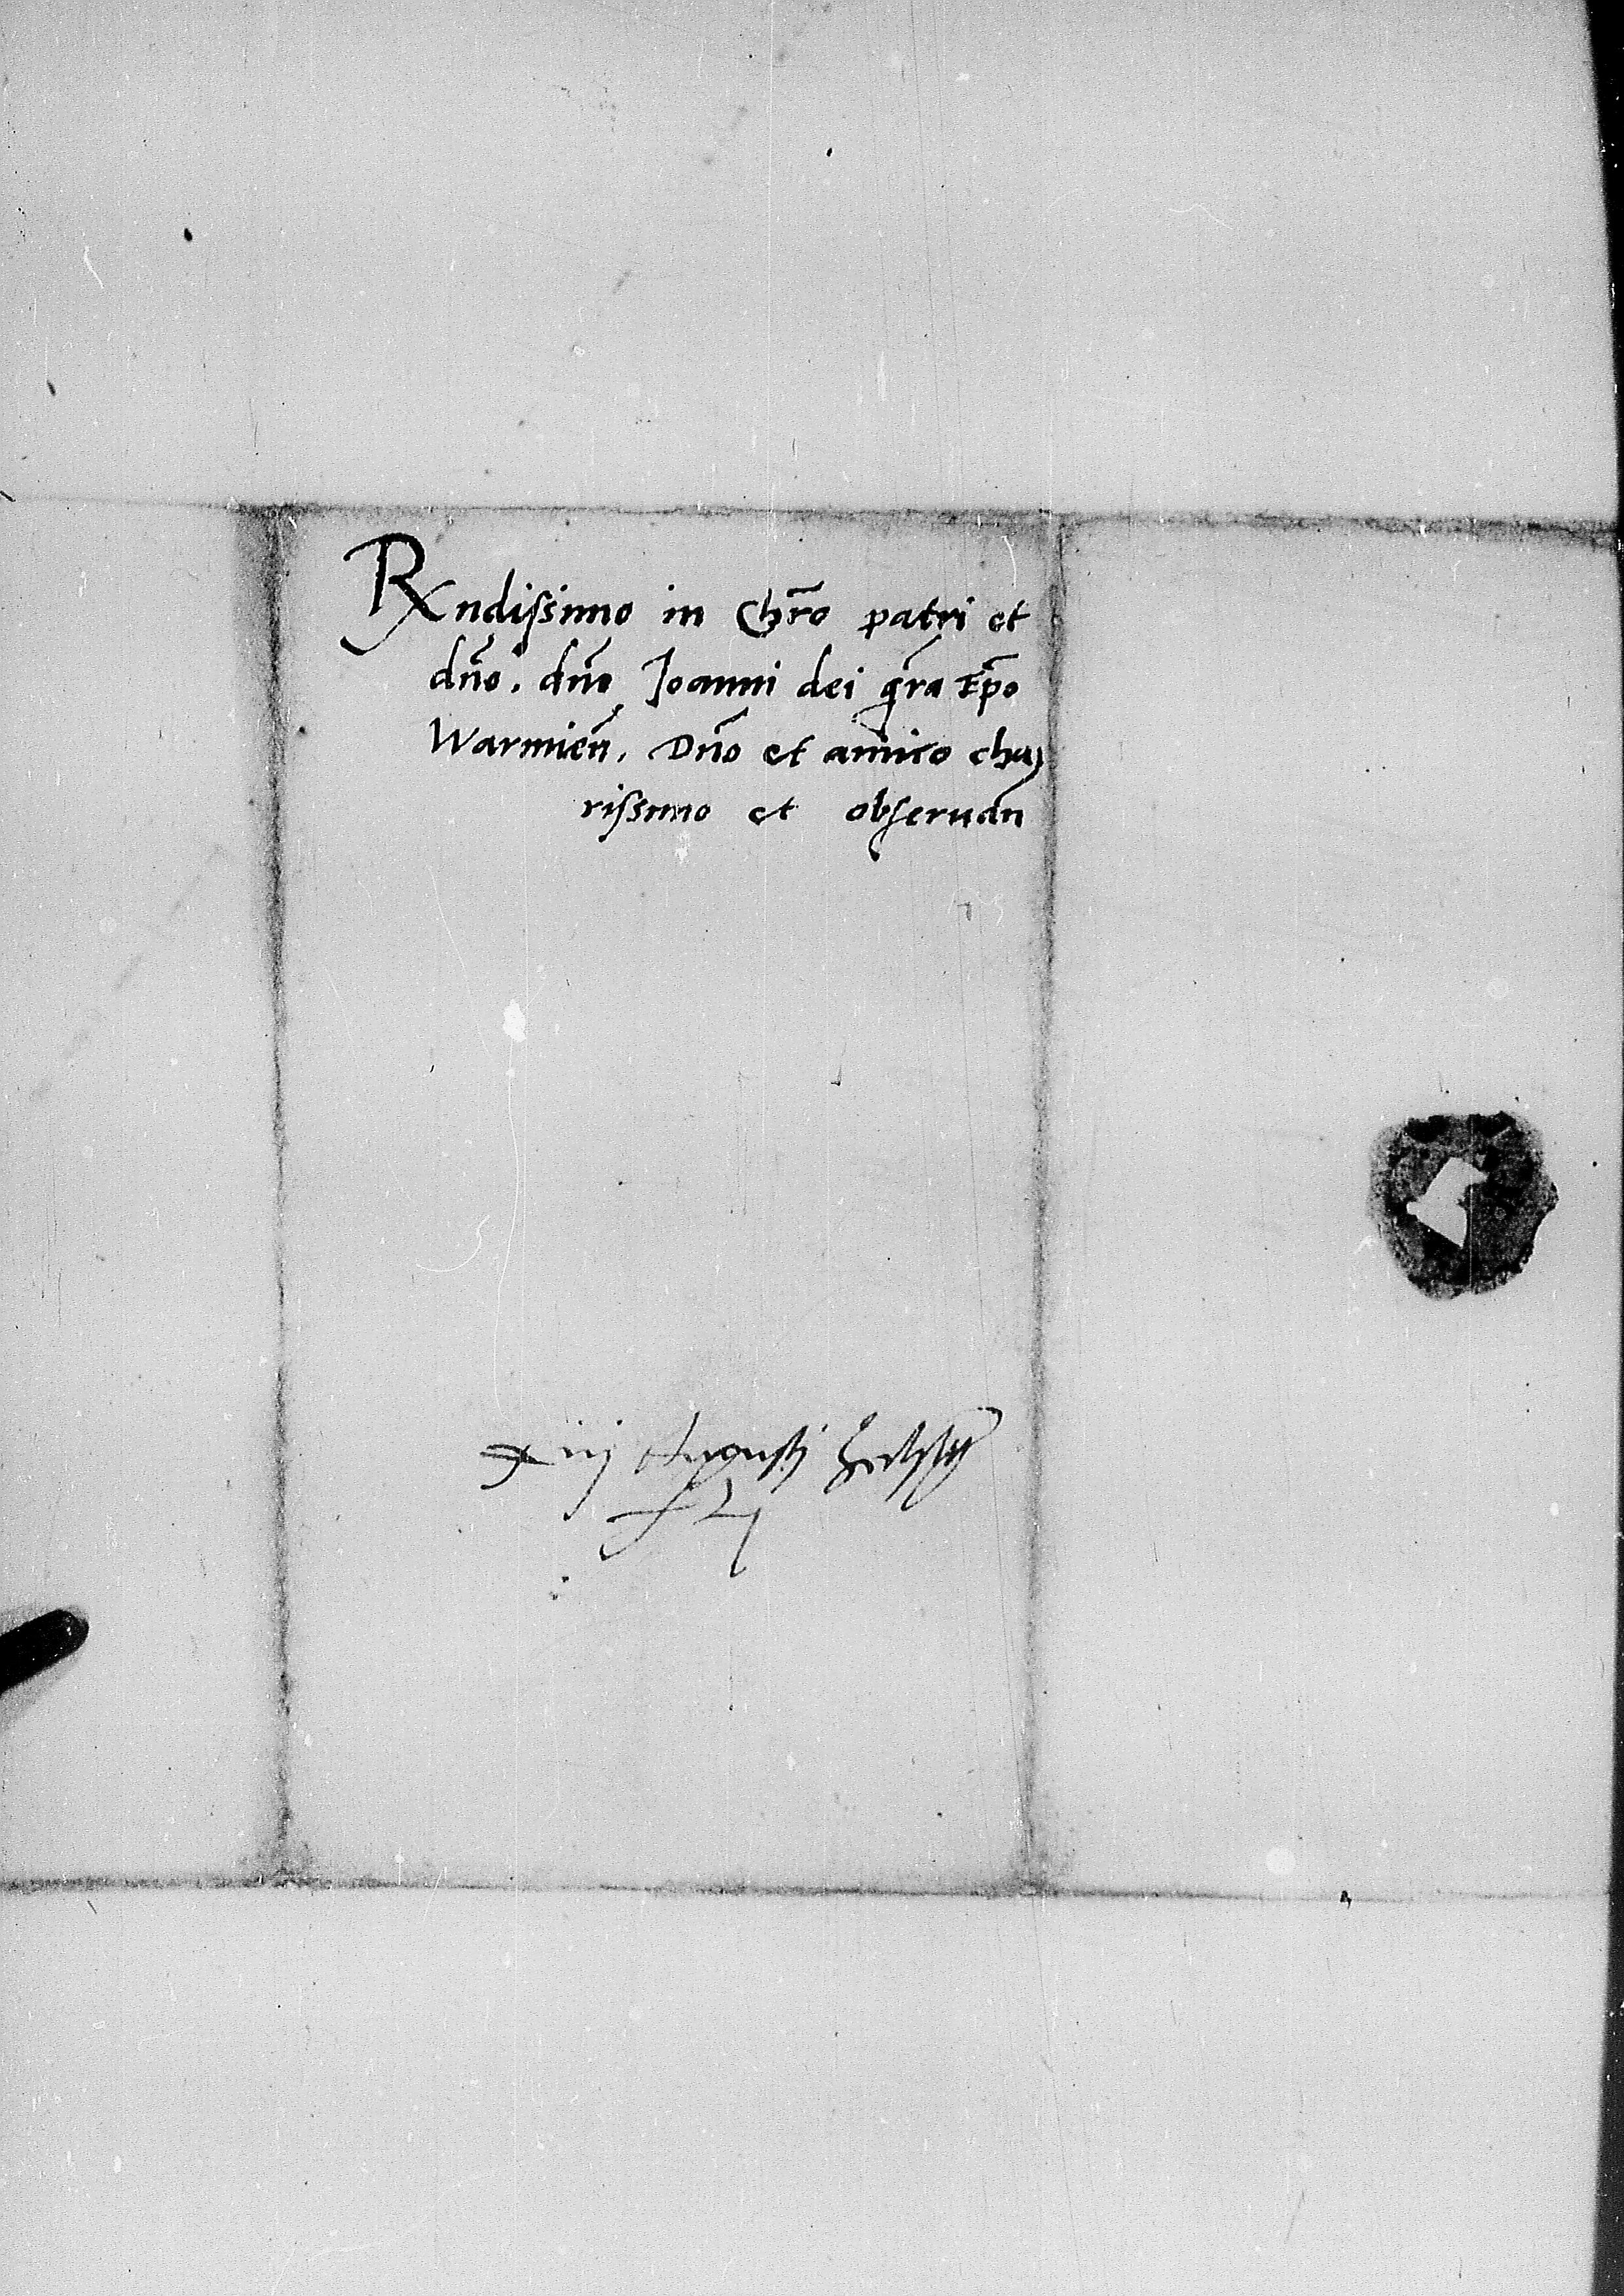 Rxndissimo in Chr̄o patri et
dn̄o. dn̄o Joanni dei gr̄a Ep̄o
Warmien̄. Dn̄o et amico cha
rissimo et obseruan̄
xiij Augusti